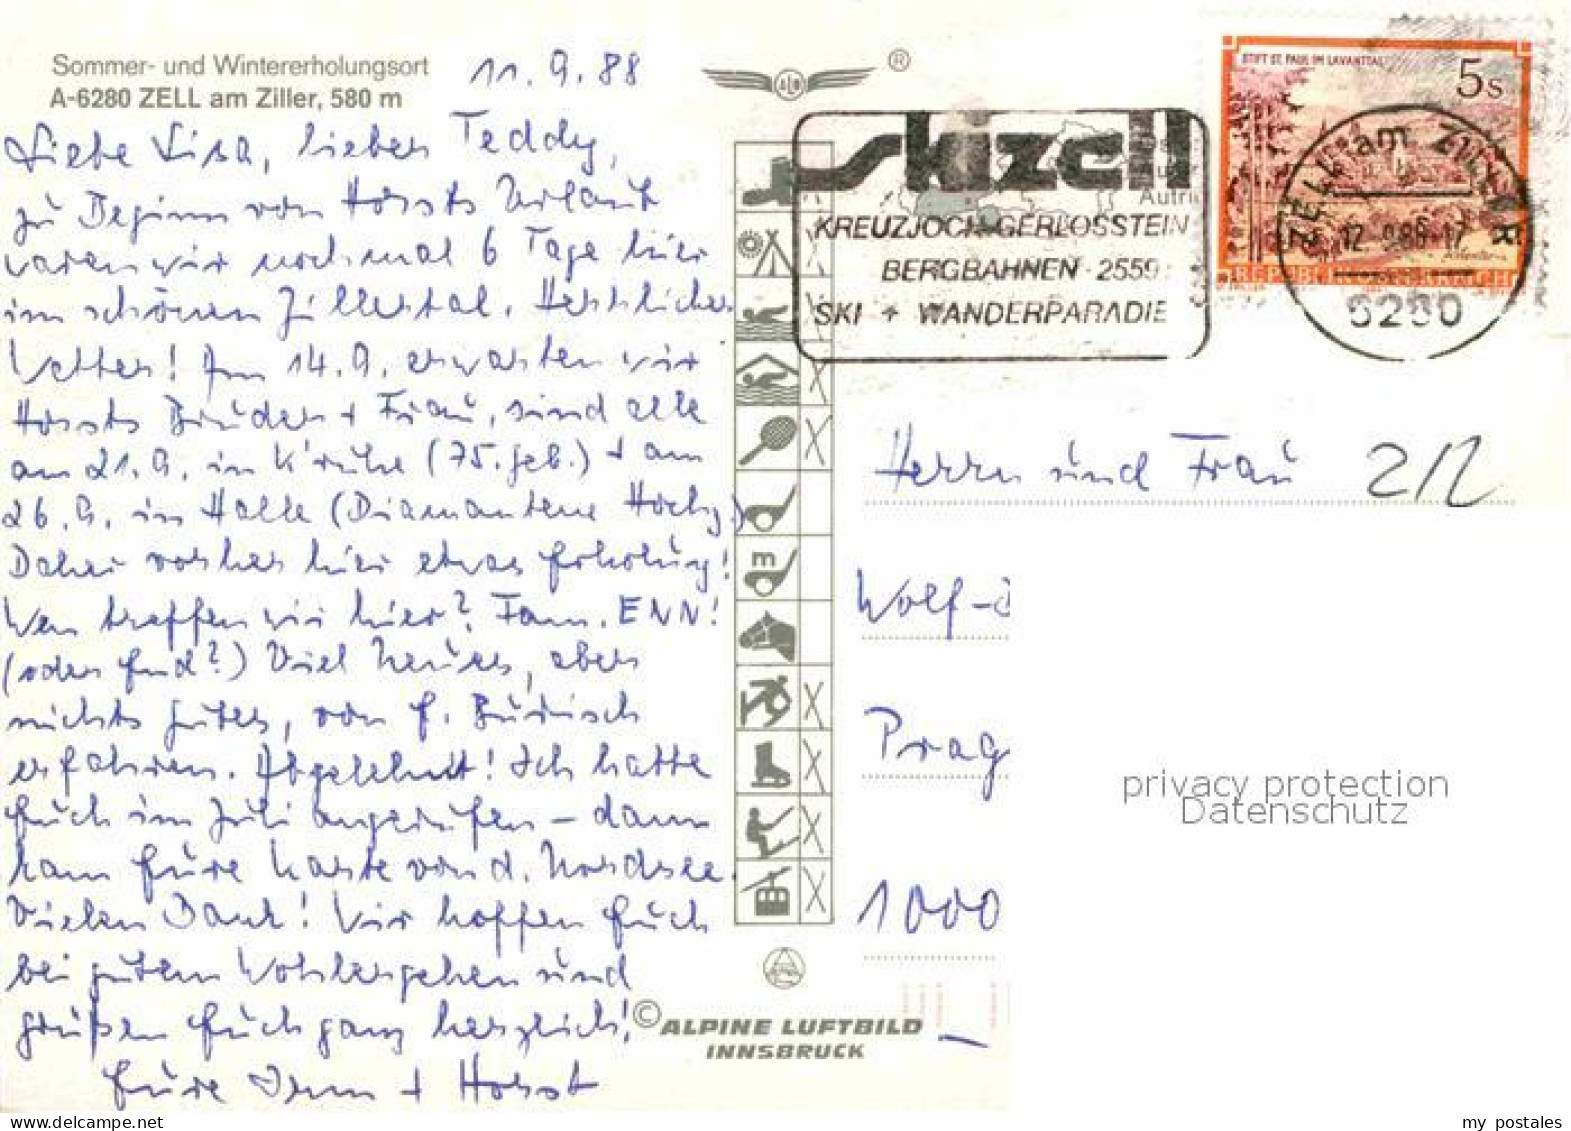 Sommer- und Wintererholungsort
A-6280 ZELL am Ziller, 580 m
11.9.88
Liebe Lisa, lieber Teddy,
zu Beginn von Horsts Urlaub
waren wir nochmal 6 Tage hier
im schönen Zillertal. Herrliches
Wetter! Am 14.9. erwarten wir
Horsts Bruder + Frau, sind alle
am 21.9. in K'ruhe (75. Geb.) + am
26.9. in Halle (Diamantene Hochz.)
Daher vorher hier etwas Erholung!
Wen treffen wir hier? Fam. ENN!
(oder End?) Viel Neues, aber
nichts Gutes, von F. Burisch
erfahren. Abgelehnt! Ich hatte
Euch im Juli angerufen – dann
kam Eure Karte von d. Nordsee.
Vielen Dank! Wir hoffen Euch
bei gutem Wohlergehen und
grüßen Euch ganz herzlich!
Eure + Horst
®
ALO
skizell
KREUZJOCH-GERLOSSTEIN
BERGBAHNEN · 2559
SKI + WANDERPARADIE
Autri
STIFT ST. PAUL IM LAVANTTAL
5s
REPUBLIK ÖSTERREICH
ZELL am ZILLER
12.9.88-17
6280
m
Herrn und Frau
2/2
Wolf-
Prag
1000
privacy protection
Datenschutz
© ALPINE LUFTBILD
INNSBRUCK
www.delcampe.net
my_postales